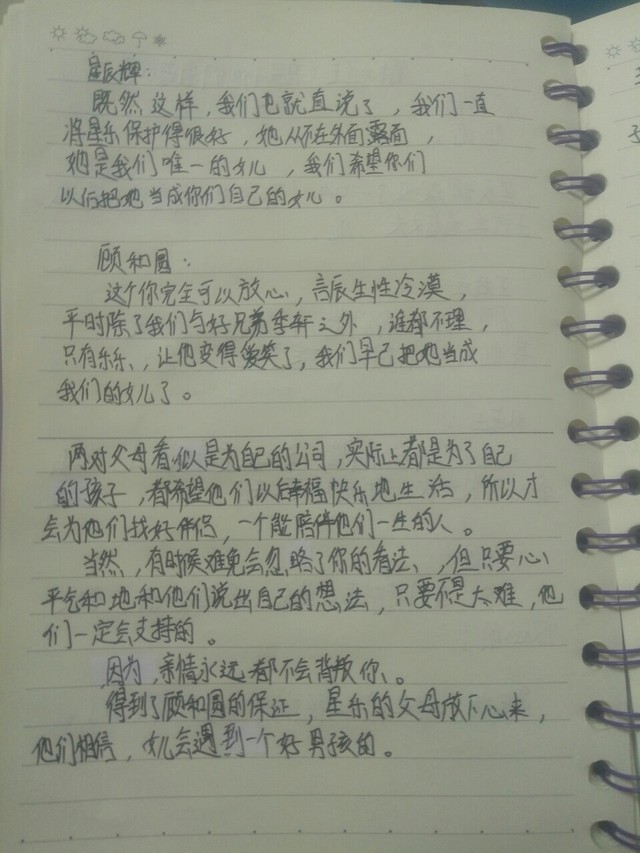 星辰辉：
既然这样，我们也就直说了，我们一直
将星乐保护得很好，她从不在外面露面，
她是我们唯一的女儿，我们希望你们
以后把她当成你们自己的女儿。
顾和圆：
这个你完全可以放心，言辰生性冷漠，
平时除了我们与好兄弟季轩之外，谁都不理，
只有乐乐、让他变得爱笑了，我们早已把她当成
我们的女儿了。
两对父母看似是为自己的公司，实际上都是为了自己
的孩子，都希望他们以后幸福快乐地生活，所以才
会为他们找好伴侣，一个能陪伴他们一生的人。
当然，有时候难免会忽略了你的看法、，但只要心、
平气和地和他们说出自己的想法，只要不是太难，他
们一定会支持的。
因为，亲情永远都不会背叛你、。
得到了顾和圆的保证，星乐的父母放下心来，
他们相信，女儿会遇到一个好男孩的。